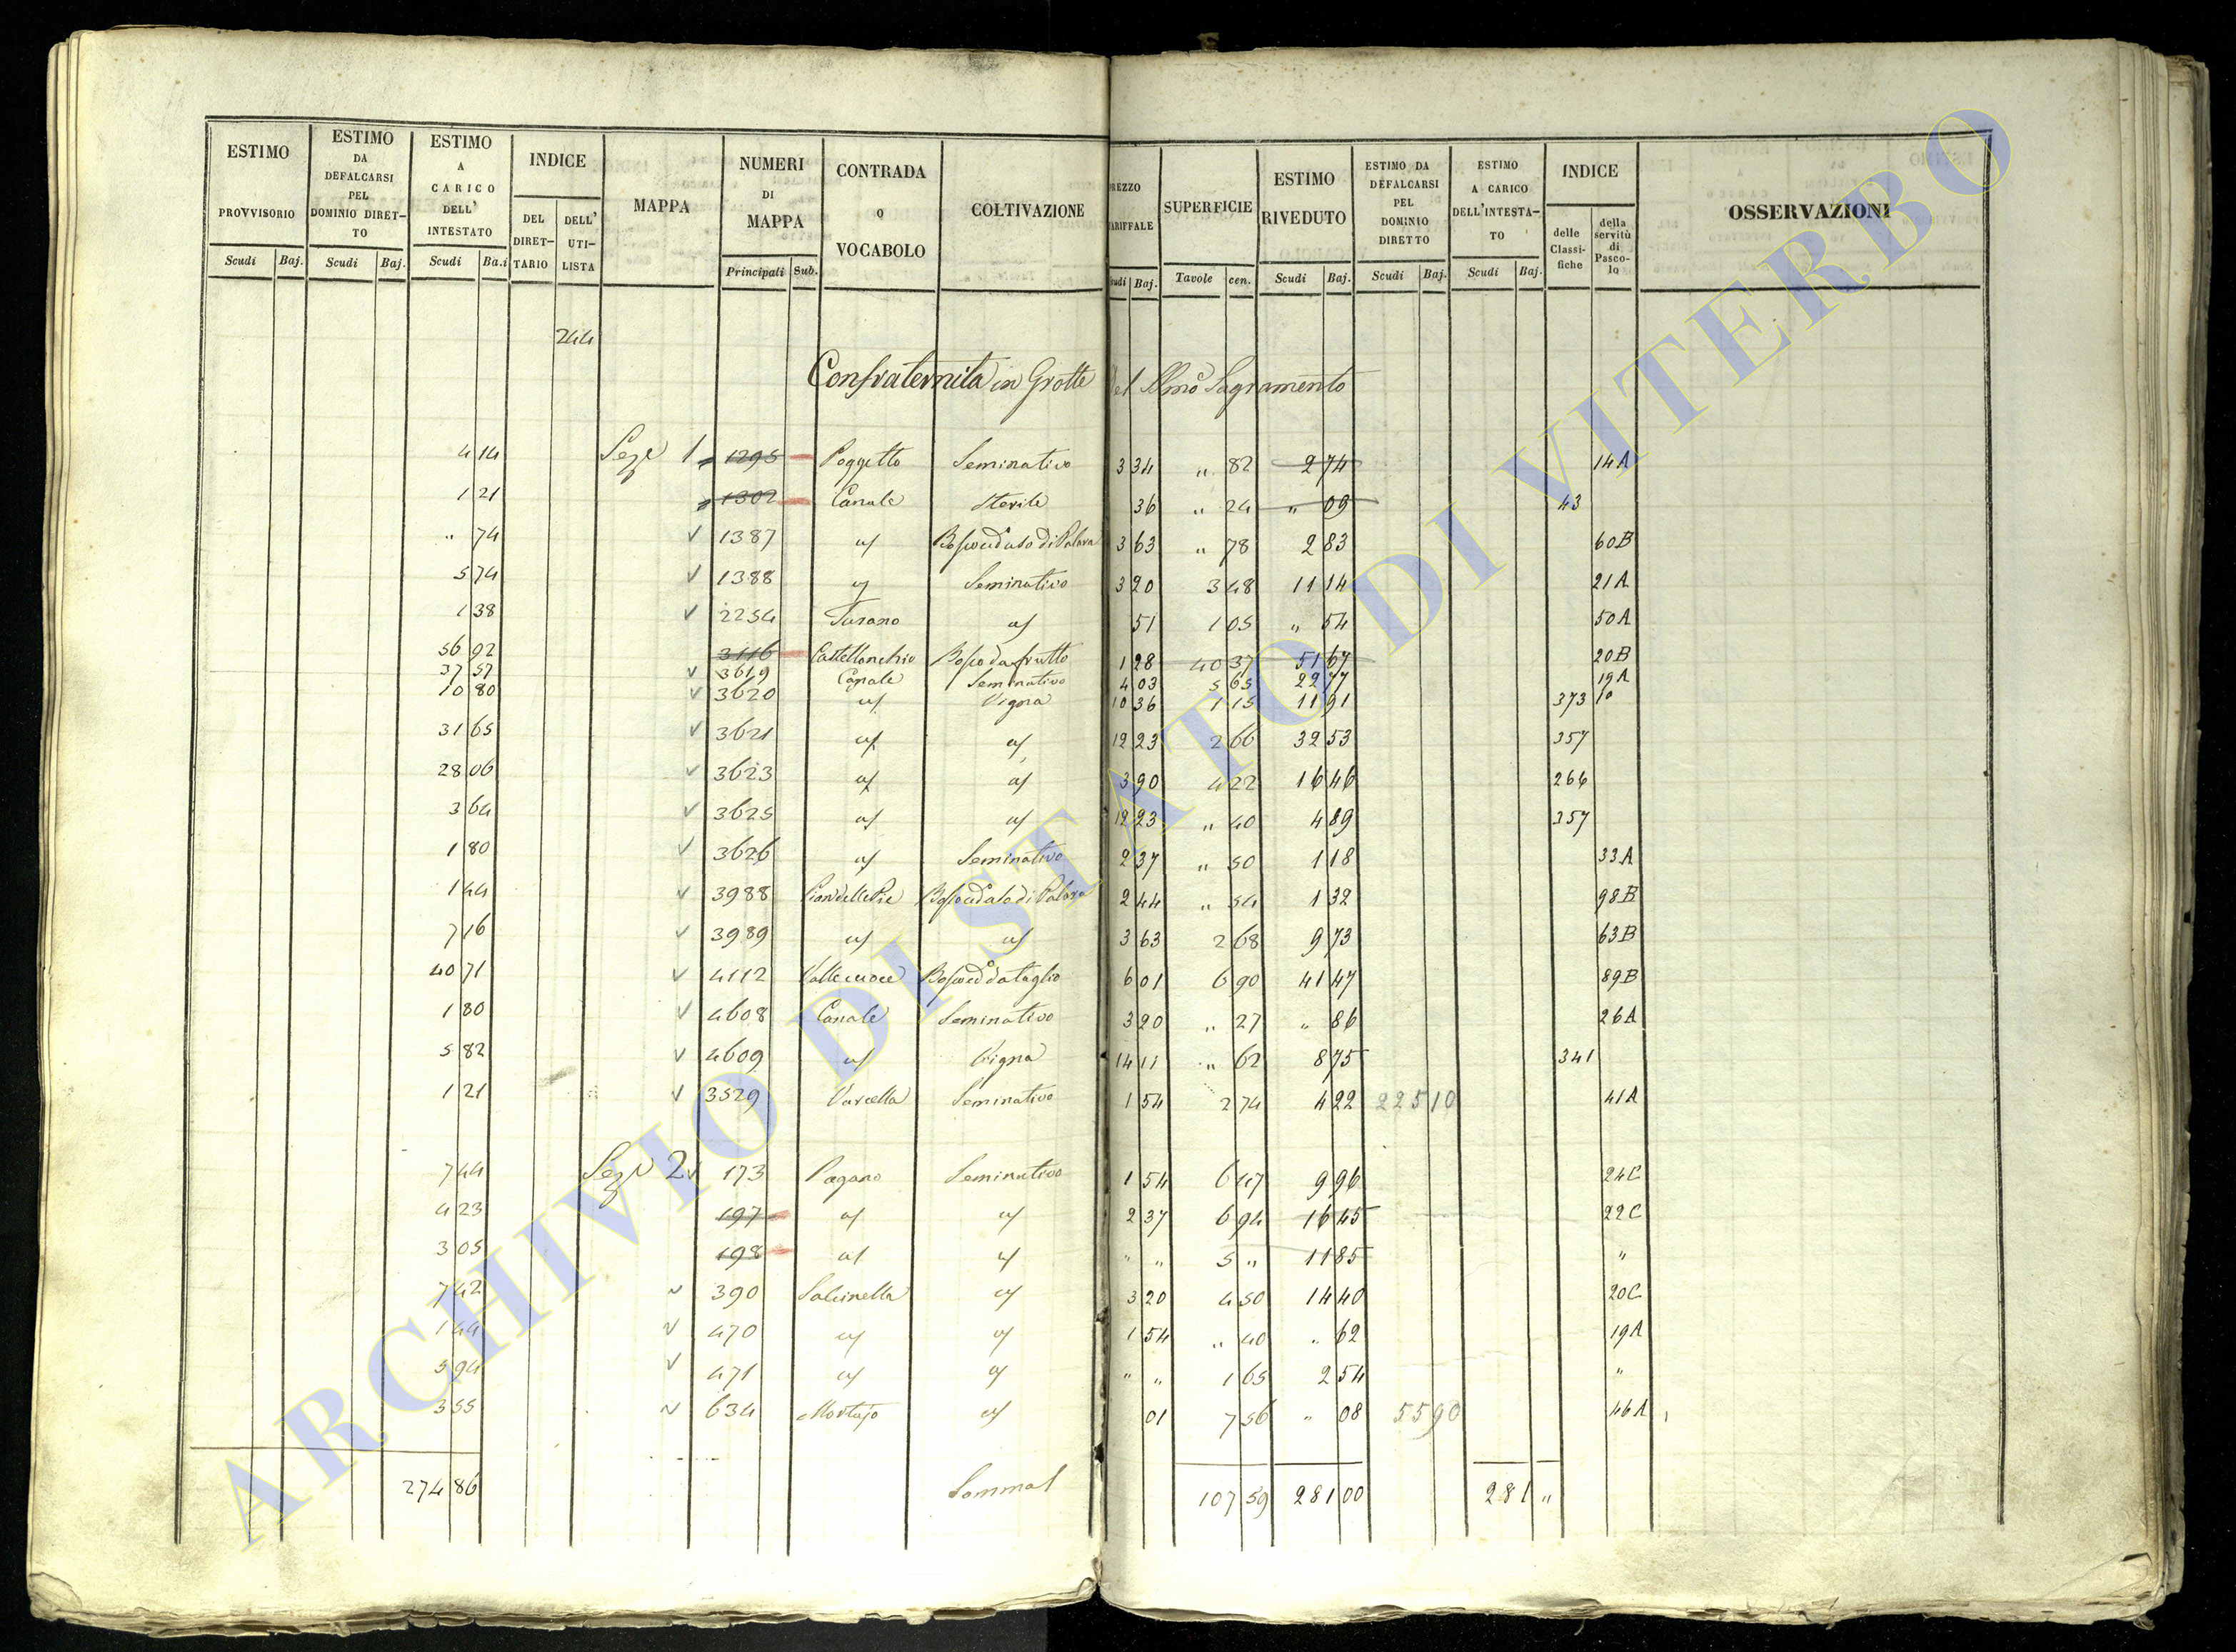 ESTIMO PROVVISORIO Scudi Baj.
ESTIMO DA DEFALCARSI PEL DOMINIO DIRETTO Scudi Baj.
ESTIMO A CARICO DELL' INTESTATO Scudi Ba.i
INDICE DEL DIRETTARIO DELL' UTILISTA
MAPPA
NUMERI DI MAPPA Principali Sub.
CONTRADA O VOCABOLO
COLTIVAZIONE
REZZO ARIFFALE udi Baj.
SUPERFICIE Tavole cen.
ESTIMO RIVEDUTO Scudi Baj.
ESTIMO DA DEFALCARSI PEL DOMINIO DIRETTO Scudi Baj.
ESTIMO A CARICO DELL'INTESTATO Scudi Baj.
INDICE delle Classifiche della servitù di Pascolo
OSSERVAZIONI
244
Confraternita in Grotte del Smo Sagramento
4 14 Seze 1 1295 Poggetto Seminativo 3 34 " 82 2 74 14A
1 21 1302 Canale Sterile 36 " 24 " 09 43
" 74 1387 " 3 63 " 78 2 83 60B
5 74 1388 " Seminativo 3 20 3 48 11 14 21A
1 38 2254 Turano " 51 1 05 " 54 50A
56 92 3116 Castellonchio Bosco da frutto 1 28 40 37 51 67 20B
37 57 3619 Canale Seminativo 4 03 5 65 22 77 19A
10 80 3620 " Vigna 10 36 1 15 11 91 373
31 65 3621 " " 12 23 2 66 32 53 357
28 06 3623 " " 3 90 4 22 16 46 266
3 64 3625 " " 12 23 " 40 4 89 357
1 80 3626 " Seminativo 2 37 " 50 1 18 33A
1 44 3988 2 44 " 54 1 32 98B
7 16 3989 " " 3 63 2 68 9 73 63B
40 71 4112 6 01 6 90 41 47 89B
1 80 4608 Canale Seminativo 3 20 " 27 " 86 26A
5 82 4609 " Vigna 14 11 " 62 8 75 341
1 21 3529 Varcella Seminativo 1 54 2 74 4 22 225 10 41A
7 44 Seze 2 173 Pagano Seminativo 1 54 6 47 9 96 24C
4 23 197 " " 2 37 6 94 16 45 22C
3 05 198 " " " " 5 " 11 85 "
7 42 390 Salcinella " 3 20 4 50 14 40 20C
1 44 470 " " 1 54 " 40 " 62 19A
5 94 471 " " " " 1 65 2 54 "
3 55 634 Mortajo " 01 7 56 " 08 55 90 46A
274 86 Somma 107 59 281 00 281 "
ARCHIVIO DI STATO DI VITERBO